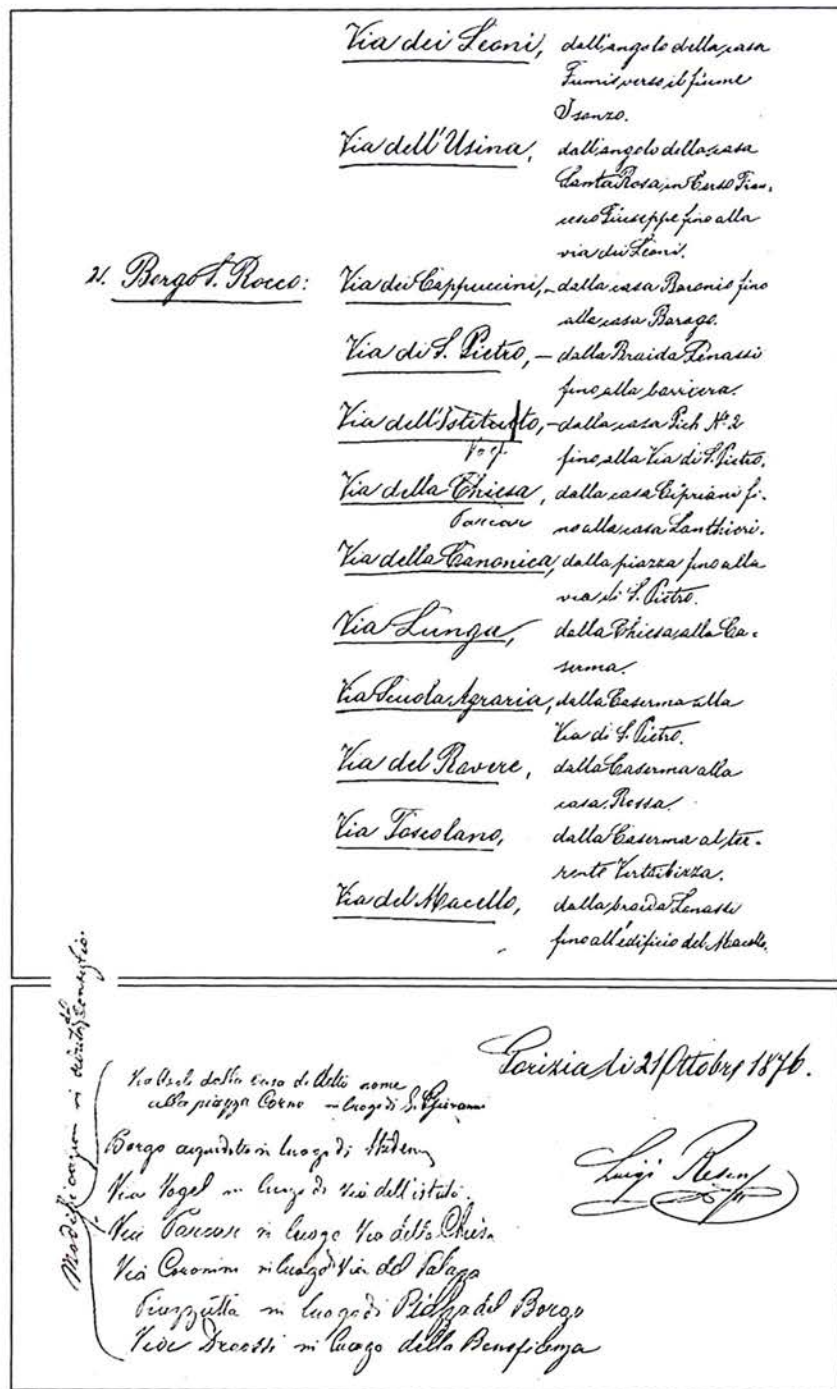 Via dei Leoni, dall'angolo della casa
Fumis verso il fiume
Isonzo.
Via dell'Usina, dall'angolo della casa
Santa Rosa, in Corso Fran-
cesco Giuseppe fino alla
via dei Leoni.
21. Borgo S. Rocco: Via dei Cappuccini, - dalla casa Baronio fino
alla casa Barago.
Via di S. Pietro, - dalla Braida Lenassi
fino alla barriera.
Via dell'Istituto, - dalla casa Pich N.º 2
Vogel fino alla Via di S. Pietro.
Via della Chiesa, dalla casa Cipriani fi-
Parcar no alla casa Lanthieri.
Via della Canonica, dalla piazza fino alla
via di S. Pietro.
Via Lunga, dalla Chiesa alla Ca-
serma.
Via Scuola Agraria, dalla Caserma alla
Via di S. Pietro.
Via del Rovere, dalla Caserma alla
casa Rossa.
Via Toscolano, dalla Caserma al tor-
rente
Via del Macello, dalla braida Lenassi
fino all'edificio del Macello.
Modificazioni in Consiglio.
Gorizia li 21 Ottobre 1876.
Via Ascoli dalla casa di detto nome
alla piazza Corno in luogo di S. Giovanni
Borgo in luogo di
Via Vogel in luogo di via dell'istituto.
Via Parcar in luogo Via della Chiesa
Via Coronini in luogo di Via del Palazzo
Piazzutta in luogo di Piazza del Borgo
Via Dreossi in luogo della Beneficenza
Luigi